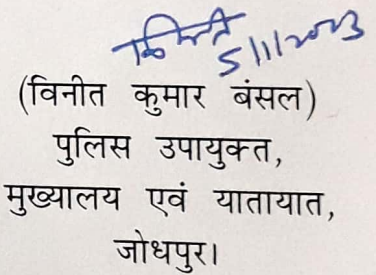 5/1/2023
(विनीत कुमार बंसल)
पुलिस उपायुक्त,
मुख्यालय एवं यातायात,
जोधपुर।